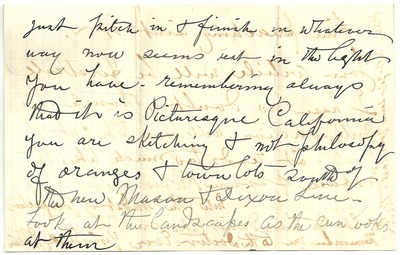 just pitch in & finish in whatever
way now seems est in the light
you have - remembering always
that it is Picturesque California
you are sketching & not philosophy
of oranges & town lots south of
the new Mason & Dixon line -
Look at the landscapes as the sun ooks
at them